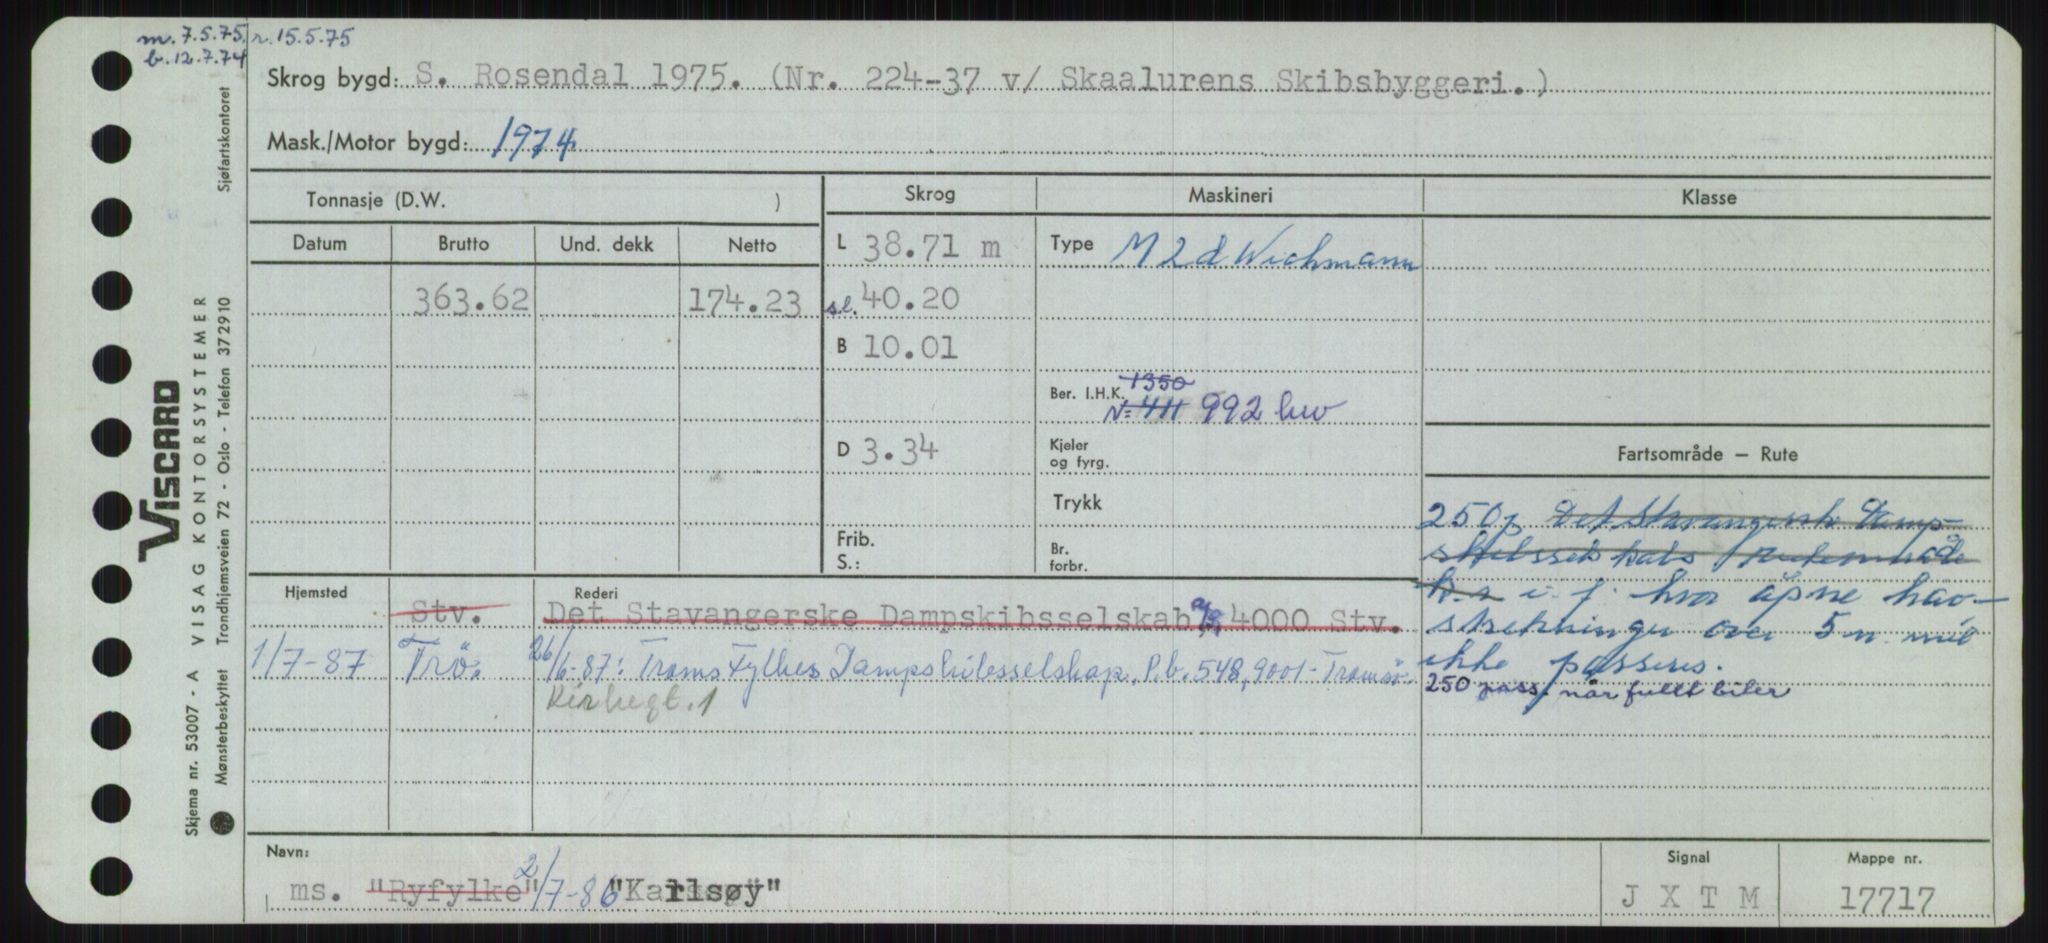 m. 7.5.75. r. 15.5.75
b. 12.7.74
Skrog bygd: S. Rosendal 1975. (Nr. 224-37 v/ Skaalurens Skibsbyggeri.)
Mask./Motor bygd: 1974
Tonnasje (D.W. )
Datum Brutto Und. dekk Netto
363.62 174.23
Skrog
L 38.71 m
sl. 40.20
B 10.01
D 3.34
Frib.
S.:
Maskineri
Type M 2 d Wichmann
1350
Ber. I.H.K.
N= 411 992 kw
Kjeler
og fyrg.
Trykk
Br.
forbr.
Klasse
Fartsområde – Rute
250 p Det Stavangerske Damp-
skibsselskabs ruteområde
i. f. hvor åpne hav-
strekninger over 5 n. mil
ikke passeres.
250 pass. når fullt biler
Hjemsted Rederi
Stv. Det Stavangerske Dampskibsselskab a/s, 4000 Stv.
1/7-87 Trö. 26/6-87: Troms Fylkes Dampskibsselskap, P.b. 548, 9001 - Tromsö.
Kirkegt. 1
Navn:
ms. "Ryfylke" 2/7-86 "Karlsøy"
Signal
J X T M
Mappe nr.
17717
Sjøfartskontoret
VISCARD
VISAG KONTORSYSTEMER
Trondhjemsveien 72 - Oslo - Telefon 372910
Skjema nr. 53007 - A
Mønsterbeskyttet